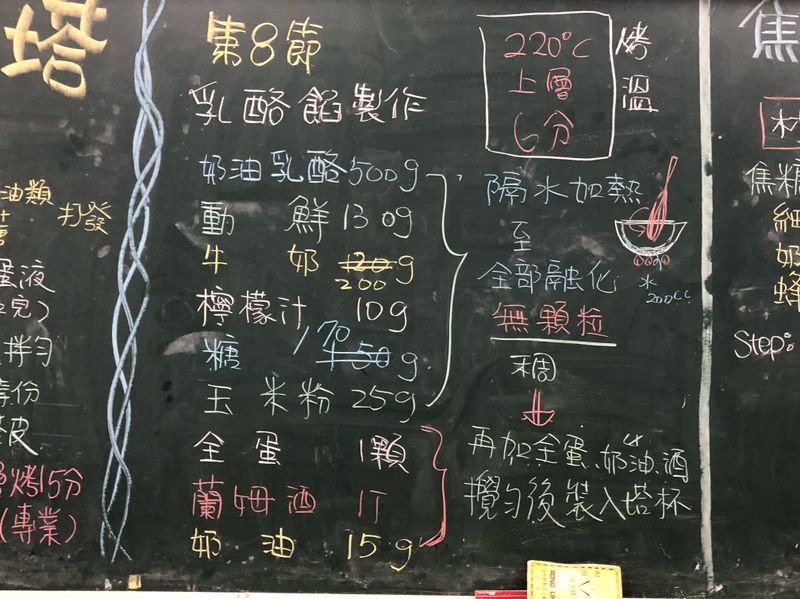 塔
油類
打發
蛋液
拌勻
烤15分
(專業)
第8節
乳酪餡製作
奶油乳酪500g
動 鮮130g
牛 奶 120 g
200
檸檬汁 10g
糖 170 150g
玉米粉 25g
全蛋 1顆
蘭姆酒 1T
奶油 15g
220°C
上層
6分
烤溫
隔水加熱
至
全部融化
水
200cc
無顆粒
稠
再加全蛋、奶油、酒
攪勻後裝入塔杯
焦
材
焦糖
細
奶
蜂
Step:
RONG LI